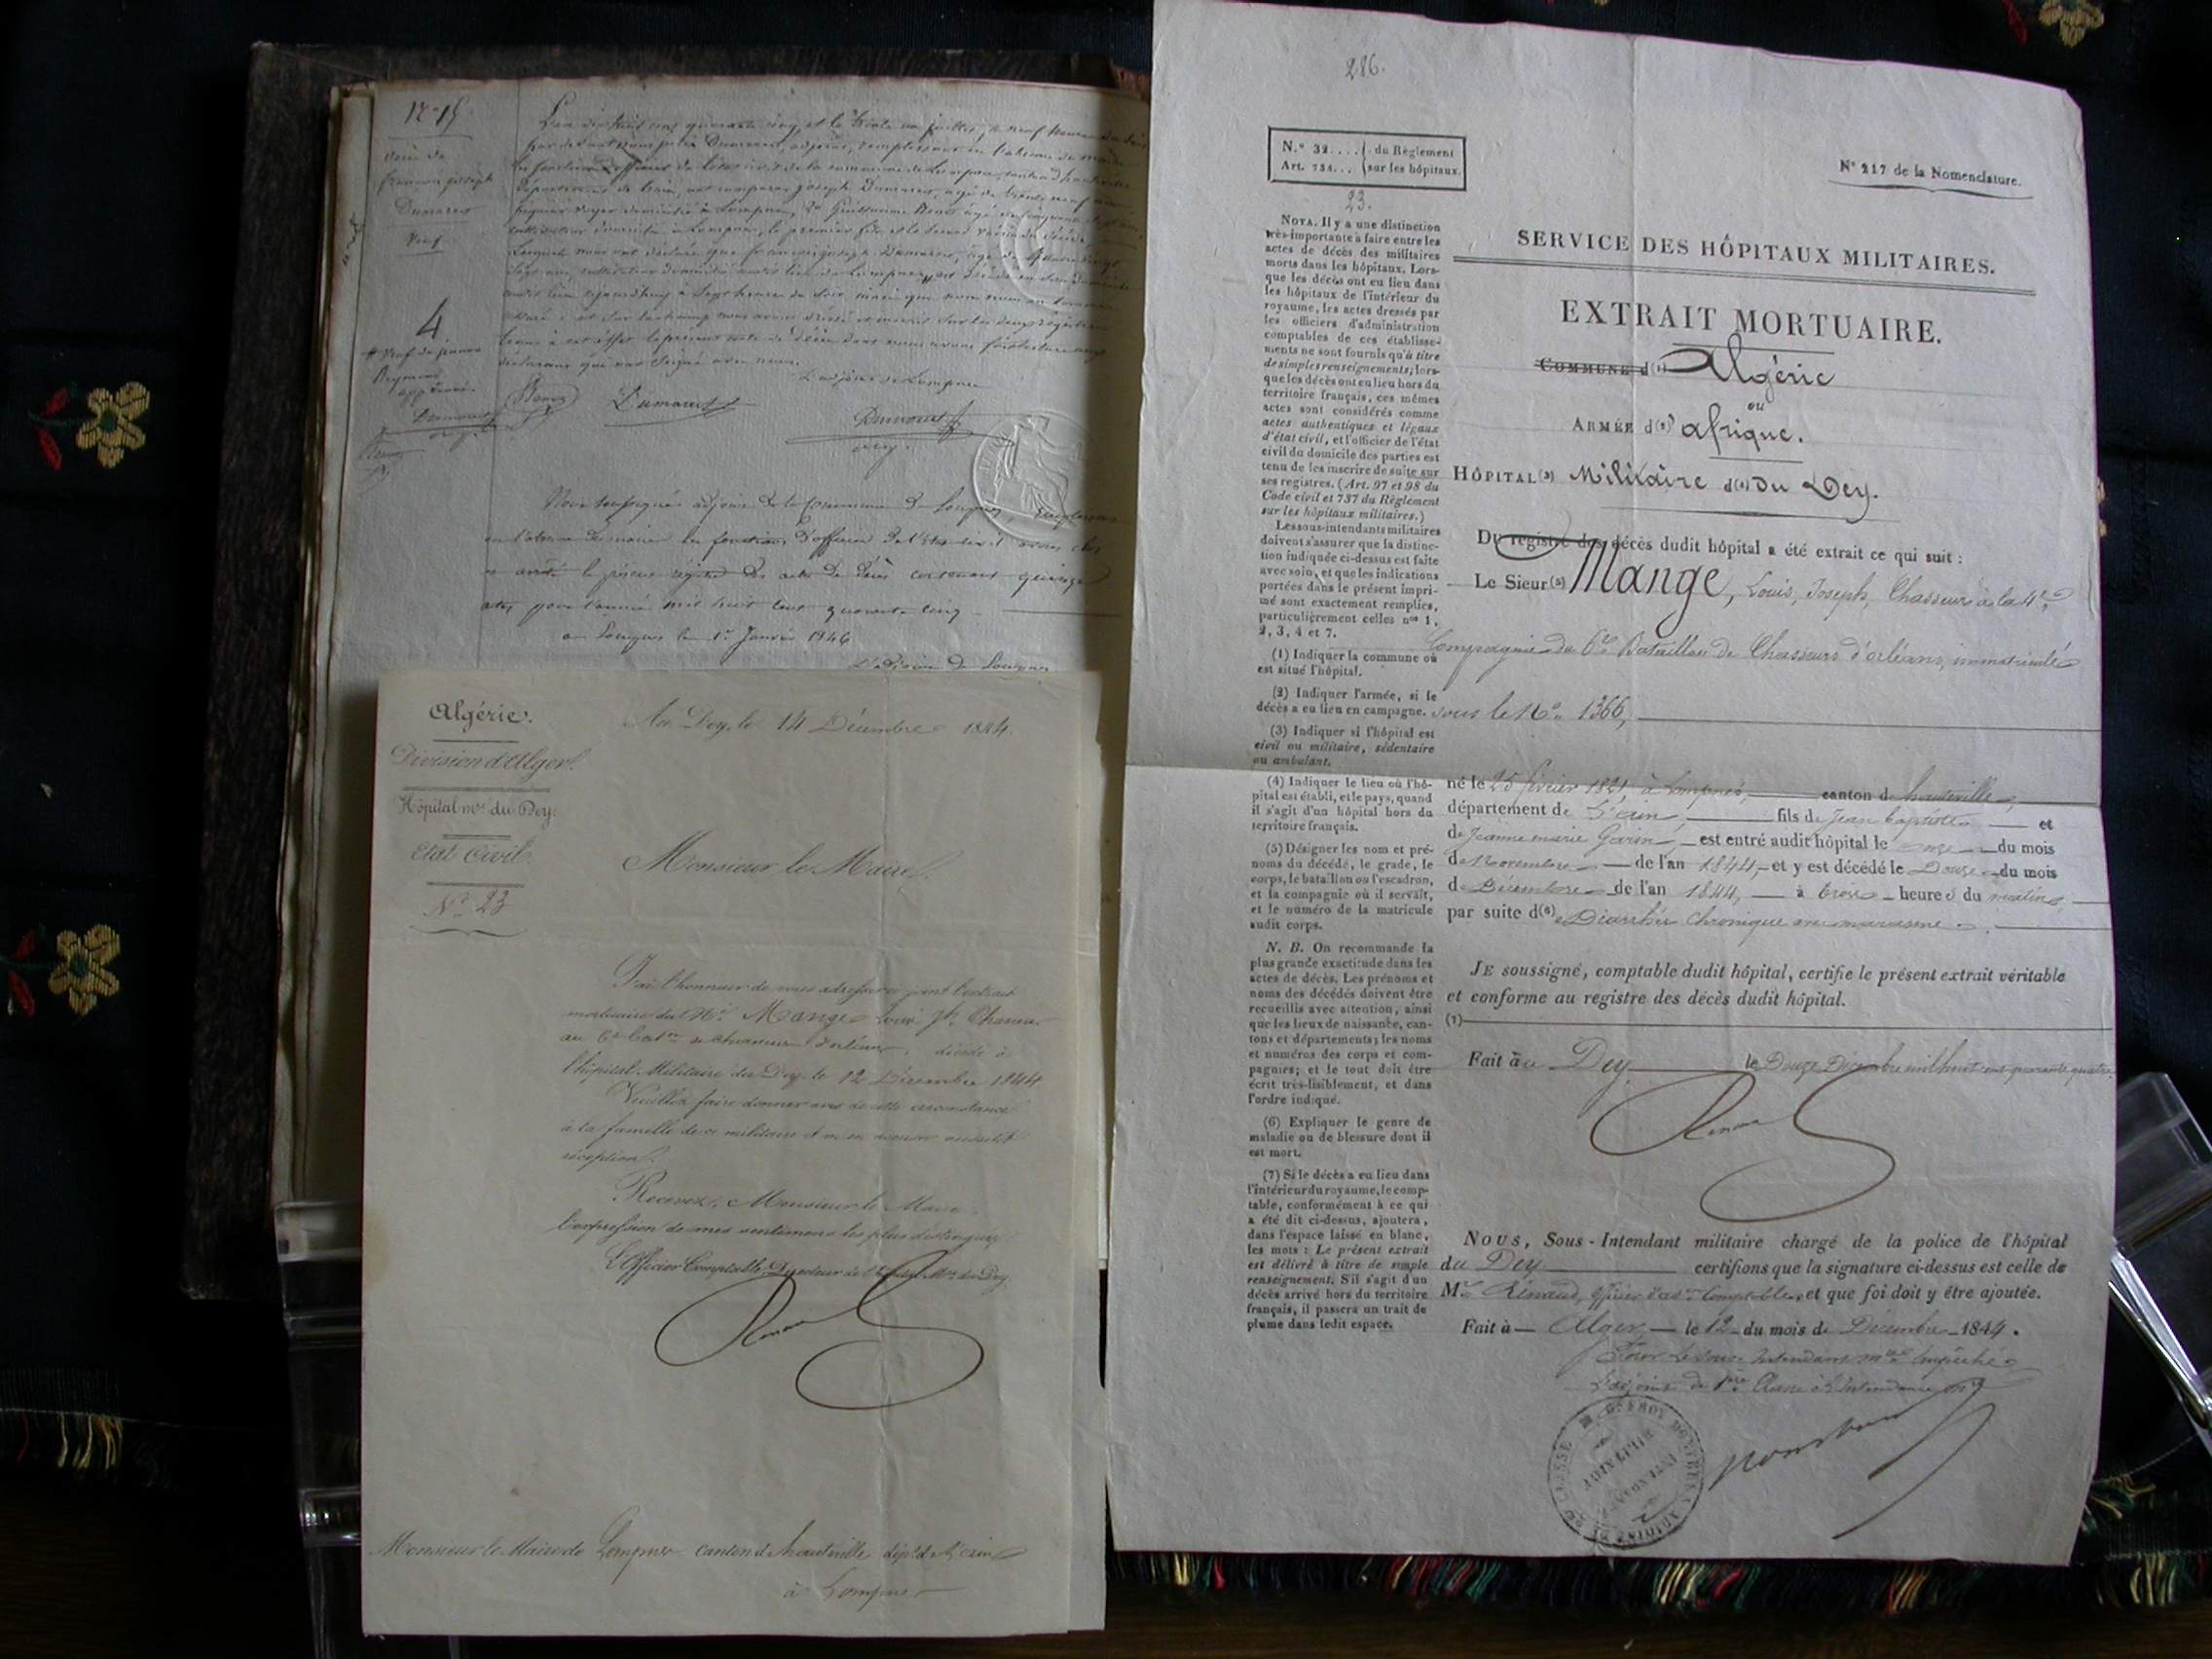 N° 15
décès de
françois joseph
Dumarest
Veuf
4
L'an dix huit cent quarante cinq et le trente un juillet, à neuf heures du soir
par devant nous Dumarest, adjoint, remplissant en l'absence du maire
les fonctions d'officier de l'état civil de la commune de Lompnes, canton d'hauteville
département de l'ain, ont comparu joseph Dumarest, âgé de trente neuf ans
domicilié à Lompnes, le premier fils et le second voisin du décédé
Lesquels nous ont déclaré que françois joseph Dumarest, âgé de quatre vingt
sept ans, cultivateur
L'adjoint de Lompnes
Dumarest
Dumarest
Dumarest
Nous soussigné adjoint de la Commune de Lompnes, remplissant
en l'absence du maire les fonctions d'officier de l'état civil avons clos
et arrêté le présent registre des actes de décès contenant quinze
actes pour l'année mil huit cent quarante cinq
à Lompnes le 1er Janvier 1846
L'adjoint de Lompnes
Algérie.
Division d'Alger.
Hôpital mre du Dey.
Etat Civil.
N° 23
Au Dey, le 14 Décembre 1844.
Monsieur le Maire,
J'ai l'honneur de vous adresser ci joint l'extrait
mortuaire du Né Mange Louis Jh Chasseur
au 6e Baton de chasseurs d'orléans, décédé à
l'hôpital Militaire du Dey le 12 Décembre 1844
Veuillez faire donner avis de cette circonstance
à la famille de ce militaire et m'en accuser aussitôt
réception.
Recevez, Monsieur le Maire,
l'expression de mes sentimens les plus distingués
L'Officier Comptable Directeur de l'hôpital Mre du Dey
Monsieur le Maire de Lompnes canton d'hauteville dépt de l'ain
à Lompnes
286.
N.° 32.... du Règlement
Art. 731... sur les hôpitaux.
N° 217 de la Nomenclature.
23.
SERVICE DES HÔPITAUX MILITAIRES.
EXTRAIT MORTUAIRE.
COMMUNE d(1) Algérie
ou
ARMÉE d(2) afrique.
HÔPITAL(3) Militaire d(4) du Dey.
Du registre des décès dudit hôpital a été extrait ce qui suit :
Le Sieur(5) Mange, Louis, Joseph, Chasseur à la 4e
Compagnie du 6e Bataillon de Chasseurs d'orléans, immatriculé
sous le No. 1366,
né le 25 février 1821 à Lompnes, canton d'hauteville,
département de L'ain, fils de Jean baptiste et
de Jeanne marie Garin, est entré audit hôpital le onze du mois
de Novembre de l'an 1844, et y est décédé le Douze du mois
de Décembre de l'an 1844, à trois heures du matin,
par suite d(6)e Diarrhée chronique avec marasme.
JE soussigné, comptable dudit hôpital, certifie le présent extrait véritable
et conforme au registre des décès dudit hôpital.
(7)
Fait à au Dey le Douze Décembre mil huit cent quarante quatre.
NOUS, Sous-Intendant militaire chargé de la police de l'hôpital
du Dey certifions que la signature ci-dessus est celle de
Mr Rénaud, officier d'adon Comptable, et que foi doit y être ajoutée.
Fait à Alger, le 12 du mois de Décembre 1844.
Pour le sous Intendant mre empêché
L'adjoint de 1ère Classe à l'Intendance mre
NOTA. Il y a une distinction
très-importante à faire entre les
actes de décès des militaires
morts dans les hôpitaux. Lors-
que les décès ont eu lieu dans
les hôpitaux de l'intérieur du
royaume, les actes dressés par
les officiers d'administration
comptables de ces établisse-
ments ne sont fournis qu'à titre
de simples renseignements; lors-
que les décès ont eu lieu hors du
territoire français, ces mêmes
actes sont considérés comme
actes authentiques et légaux
d'état civil, et l'officier de l'état
civil du domicile des parties est
tenu de les inscrire de suite sur
ses registres. (Art. 97 et 98 du
Code civil et 737 du Règlement
sur les hôpitaux militaires.)
Les sous-intendants militaires
doivent s'assurer que la distinc-
tion indiquée ci-dessus est faite
avec soin, et que les indications
portées dans le présent impri-
mé sont exactement remplies,
particulièrement celles nos 1,
2, 3, 4 et 7.
(1) Indiquer la commune où
est situé l'hôpital.
(2) Indiquer l'armée, si le
décès a eu lieu en campagne.
(3) Indiquer si l'hôpital est
civil ou militaire, sédentaire
ou ambulant.
(4) Indiquer le lieu où l'hô-
pital est établi, et le pays, quand
il s'agit d'un hôpital hors du
territoire français.
(5) Désigner les nom et pré-
noms du décédé, le grade, le
corps, le bataillon ou l'escadron,
et la compagnie où il servait,
et le numéro de la matricule
audit corps.
N. B. On recommande la
plus grande exactitude dans les
actes de décès. Les prénoms et
noms des décédés doivent être
recueillis avec attention, ainsi
que les lieux de naissance, can-
tons et départements; les noms
et numéros des corps et com-
pagnies; et le tout doit être
écrit très-lisiblement, et dans
l'ordre indiqué.
(6) Expliquer le genre de
maladie ou de blessure dont il
est mort.
(7) Si le décès a eu lieu dans
l'intérieur du royaume, le comp-
table, conformément à ce qui
a été dit ci-dessus, ajoutera,
dans l'espace laissé en blanc,
les mots : Le présent extrait
est délivré à titre de simple
renseignement. S'il s'agit d'un
décès arrivé hors du territoire
français, il passera un trait de
plume dans ledit espace.